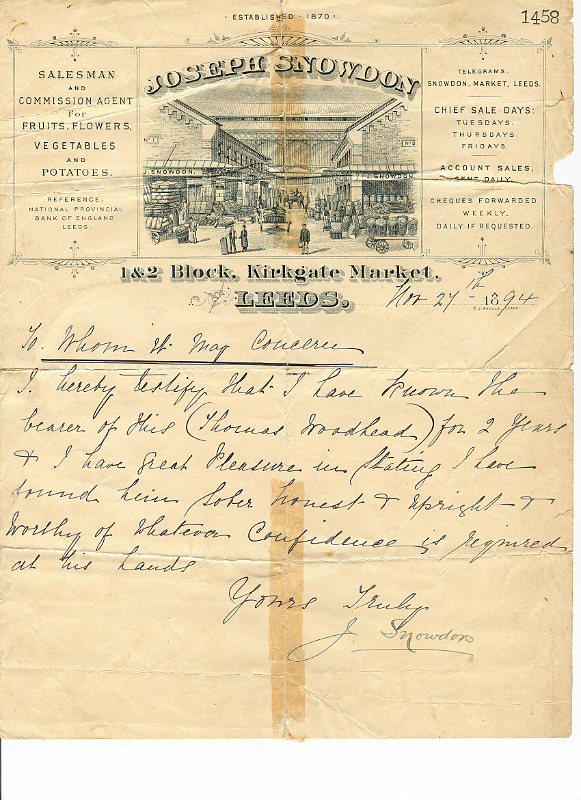 · ESTABLISHED · 1870 ·
1458
JOSEPH SNOWDON
SALESMAN
AND
COMMISSION AGENT
for
FRUITS, FLOWERS,
VEGETABLES
AND
POTATOES.
REFERENCE,
NATIONAL PROVINCIAL
BANK OF ENGLAND
LEEDS.
Nº 1
J. SNOWDON.
Nº 2
J. SNOWDON
TELEGRAMS.
SNOWDON, MARKET, LEEDS.
CHIEF SALE DAYS:
TUESDAYS.
THURSDAYS.
FRIDAYS.
ACCOUNT SALES,
SENT DAILY.
CHEQUES FORWARDED
WEEKLY,
DAILY IF REQUESTED.
1 & 2 Block, Kirkgate Market,
LEEDS.
Nov 27th 1894
To Whom it May Concern
I hereby testify that I have known the
bearer of this (Thomas Woodhead) for 2 Years
& I have Great Pleasure in Stating I have
found him Sober honest & upright &
Worthy of Whatever Confidence is required
at his hands
Yours Truly
J. Snowdon